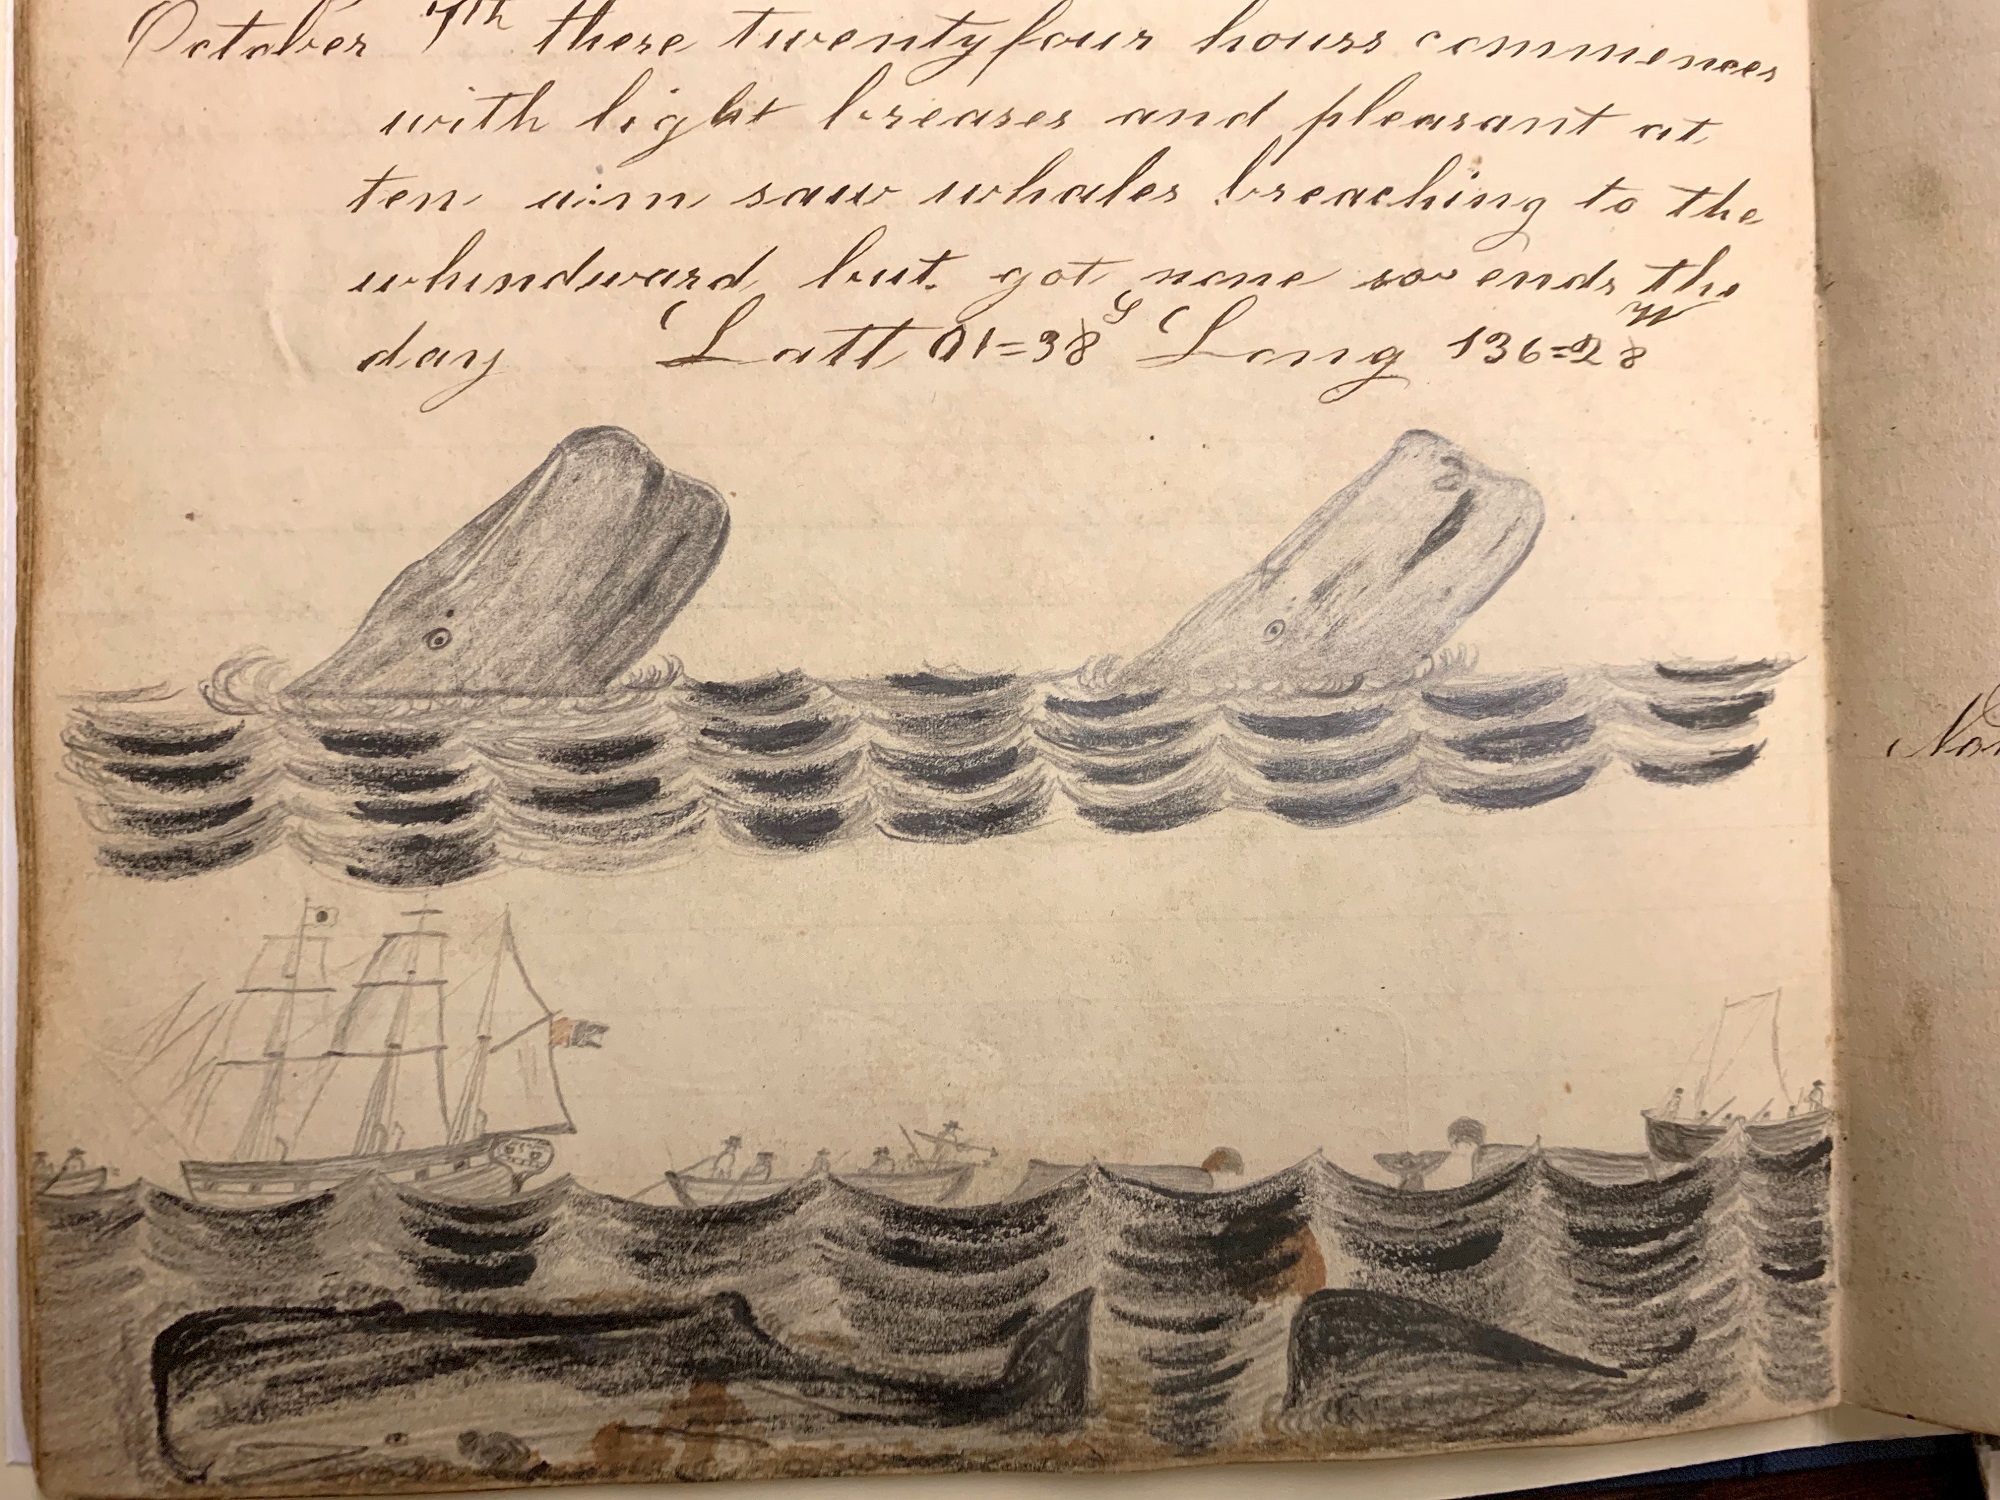 October 7th these twentyfour hours commences
with light breases and pleasant at
ten a.m saw whales breaching to the
whindward but got none so ends the
day Latt 01=38 S Long 136=28 W